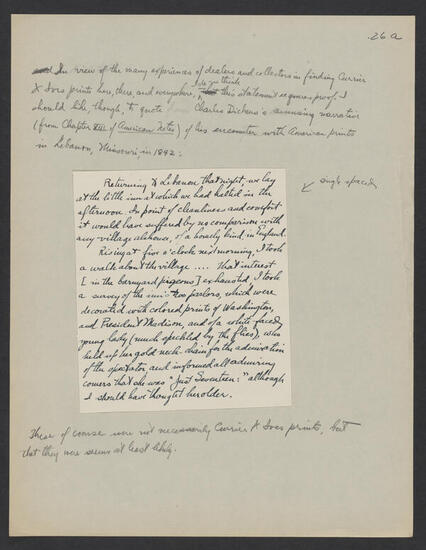 26a
In view of the many experiences of dealers and collectors in finding Currier
& Ives prints here, there and everywhere, this statement requires proof. I
should like, though, to quote Charles Dickens's amusing narrative
(from Chapter XIII of American Notes) of his encounter with American prints
in Lebanon, Missouri, in 1842:
single spaced
Returning to Lebanon that night, we lay
at the little inn at which we had halted in the
afternoon. In point of cleanliness and comfort
it would have suffered by no comparison with
any village alehouse, of a homely kind, in England.
Rising at five o'clock next morning, I took
a walk about the village .... that interest
[in the barnyard pigeons] exhausted, I took
a survey of the inn's two parlors, which were
decorated with colored prints of Washington,
and President Madison, and of a white-faced
young lady (much speckled by the flies), who
held up her gold neck-chain for the admiration
of the spectator, and informed all admiring
comers that she was "Just Seventeen:" although
I should have thought her older.
These of course were not necessarily Currier & Ives prints, but
that they were seems at least likely.